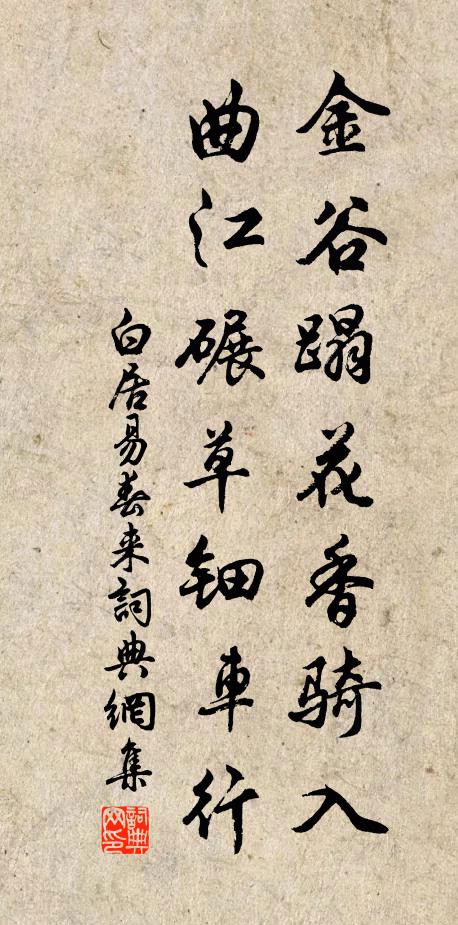 金谷蹋花香骑入
曲江碾草钿車行
白居易春来詞典網集
詞典网印